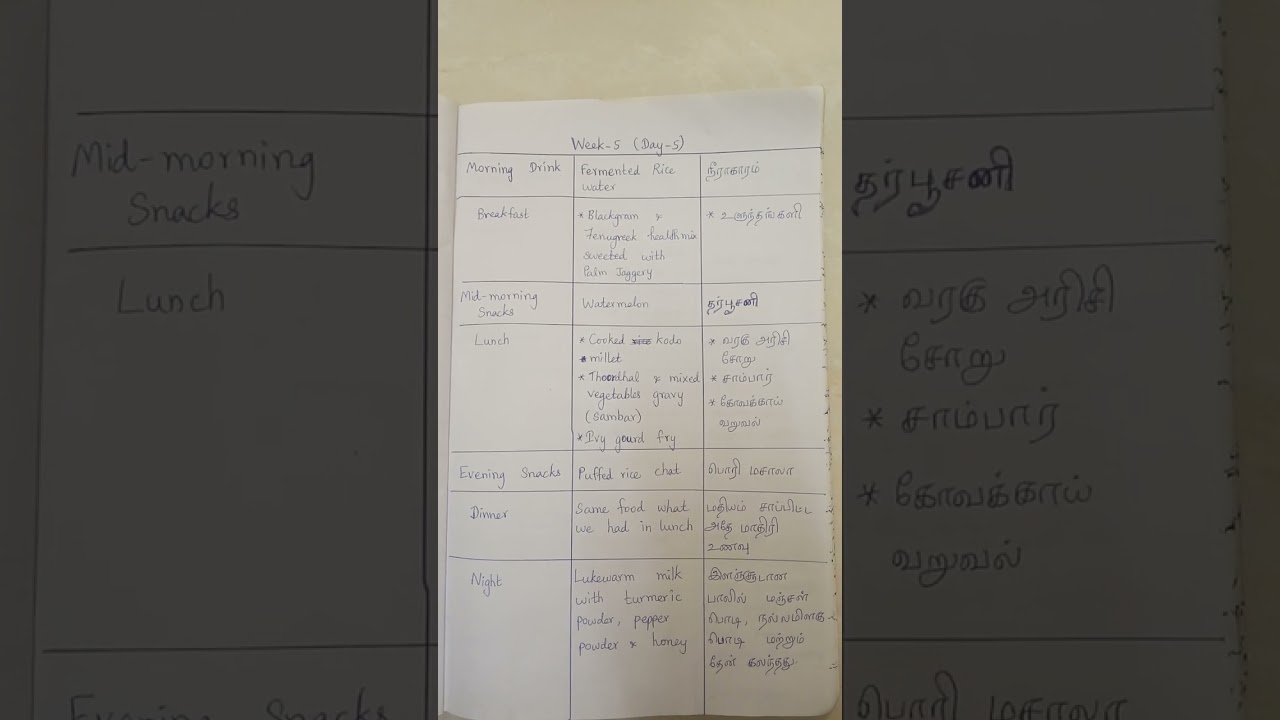 Week-5 (Day-5)
Morning Drink
Fermented Rice
water
நீராகாரம்
Breakfast
* Blackgram &
Fenugreek healthmix
sweeted with
Palm Jaggery
* உளுந்தங்களி
Mid-morning
Snacks
Watermelon
தர்பூசணி
Lunch
* Cooked kodo
* millet
* Thoorthal & mixed
vegetables gravy
(Sambar)
* Ivy gourd fry
* வரகு அரிசி
சோறு
* சாம்பார்
* கோவக்காய்
வறுவல்
Evening Snacks
Puffed rice chat
பொரி மசாலா
Dinner
Same food what
we had in lunch
மதியம் சாப்பிட்ட
அதே மாதிரி
உணவு
Night
Lukewarm milk
with turmeric
powder, pepper
powder & honey
இளஞ்சூடான
பாலில் மஞ்சள்
பொடி, நல்லமிளகு
பொடி மற்றும்
தேன் கலந்தது.
Mid-morning
Snacks
Lunch
Evening Snacks
தர்பூசணி
* வரகு அரிசி
சோறு
* சாம்பார்
* கோவக்காய்
வறுவல்
பொரி மசாலா